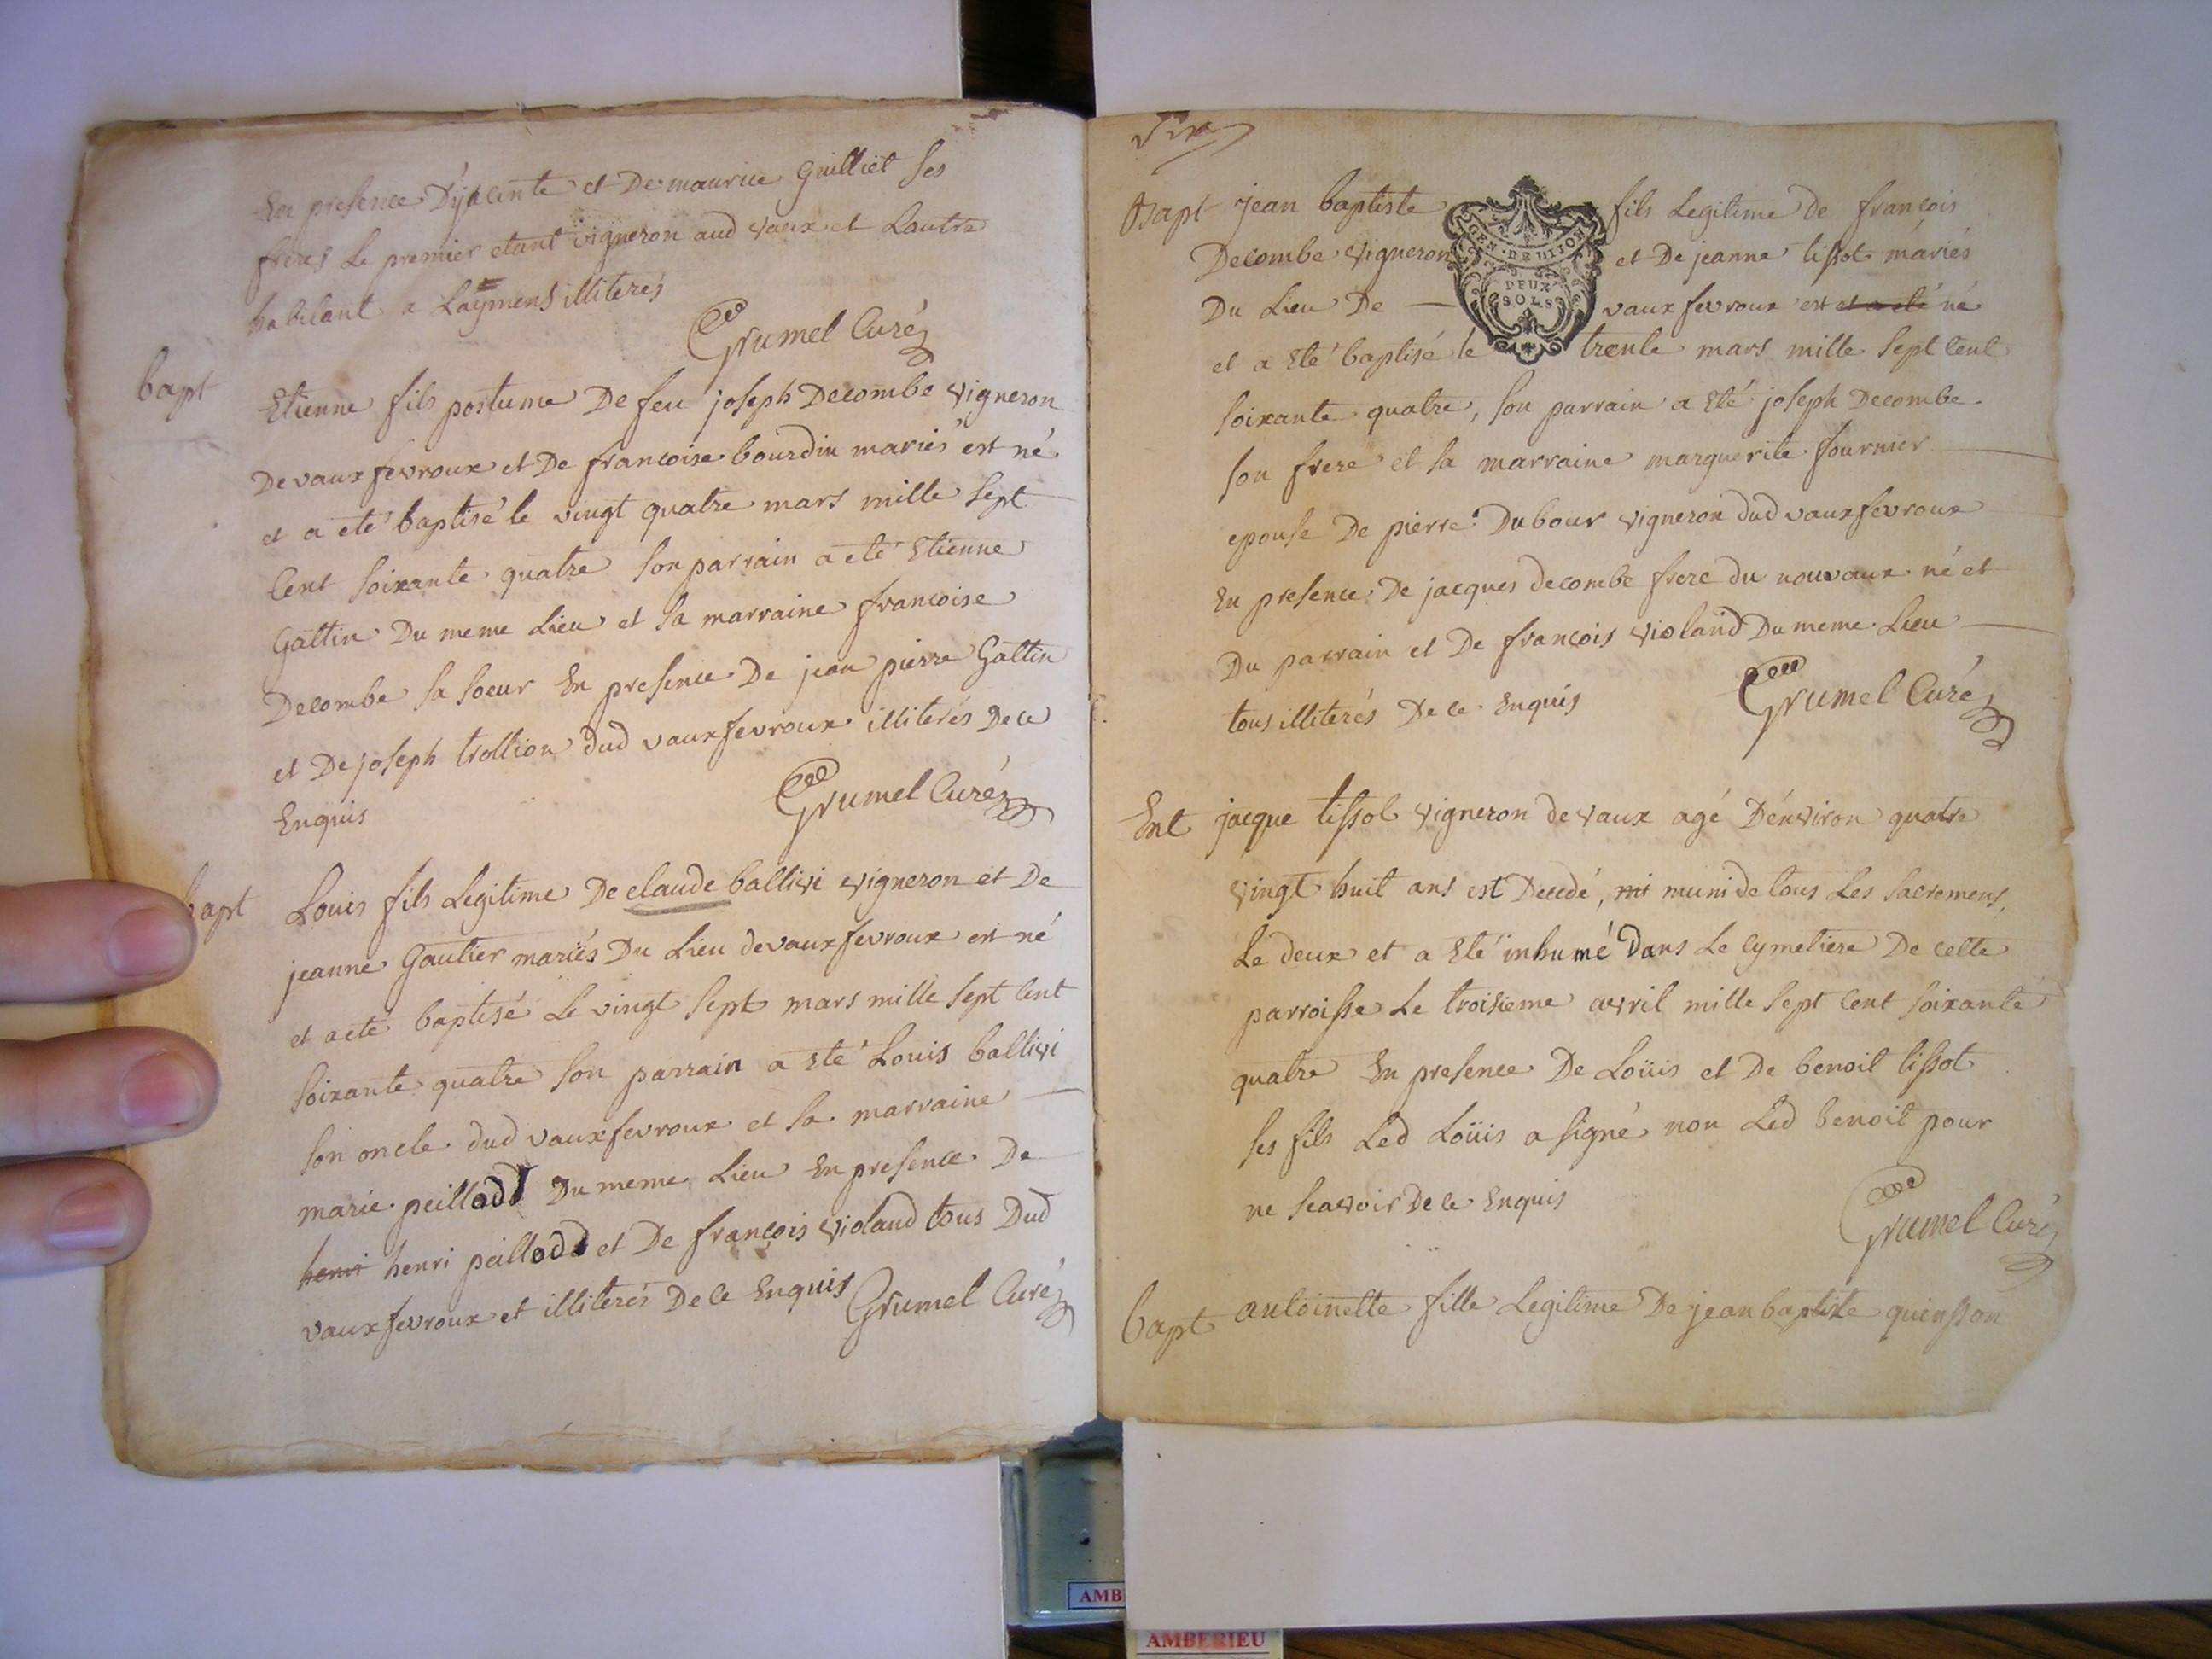 En presence D'yacinte et De maurice Guilliet ses
freres Le premier etant vigneron aud vaux et Lautre
habitant a Laymens illiterés
Grumel Curé
bapt
Etienne fils postume De feu joseph Decombe vigneron
De vaux fevroux et De francoise bourdin mariés est né
et a eté baptisé le vingt quatre mars mille sept
cent soixante quatre son parrain a eté Etienne
Gattin Du meme Lieu et sa marraine francoise
Decombe sa soeur En presence De jean pierre Gattin
et De joseph trollion dud vauxfevroux illiterés De ce
Enquis
Grumel Curé
bapt
Louis fils Legitime De claude ballivi vigneron et De
jeanne Gautier mariés Du Lieu de vauxfevroux est né
et a eté baptisé Le vingt sept mars mille sept cent
soixante quatre son parrain a eté Louis ballivi
son oncle dud vauxfevroux et sa marraine
marie peillodd Du meme Lieu En presence De
henri henri peillodd et De françois violand tous Dud
vauxfevroux et illiterés De ce Enquis Grumel Curé
Six
Bapt jean baptiste fils Legitime de françois
Decombe vigneron et De jeanne tissot mariés
Du Lieu De vaux fevroux est et a eté né
et a eté baptisé le trente mars mille sept cent
GEN·DE DIJON
DEUX
SOLS
soixante quatre, son parrain a eté joseph Decombe
son frere et sa marraine marguerite fournier
epouse De pierre Dubour vigneron dud vauxfevroux
En presence De jacques decombe frere du nouvaux né et
Du parrain et De françois violand Du meme Lieu
tous illiterés De ce Enquis
Grumel Curé
Ent jacque tissot vigneron de vaux agé D'environ quatre
vingt huit ans est Decedé, mi muni de tous Les sacremens,
Le deux et a eté inhumé Dans Le cymetiere De cette
parroisse Le troisieme avril mille sept cent soixante
quatre En presence De Loüis et De benoit tissot
ses fils Led Loüis a signé non Led benoit pour
ne scavoir De ce Enquis
Grumel Curé
bapt antoinette fille Legitime De jean baptiste quinsson
AMB
AMBERIEU